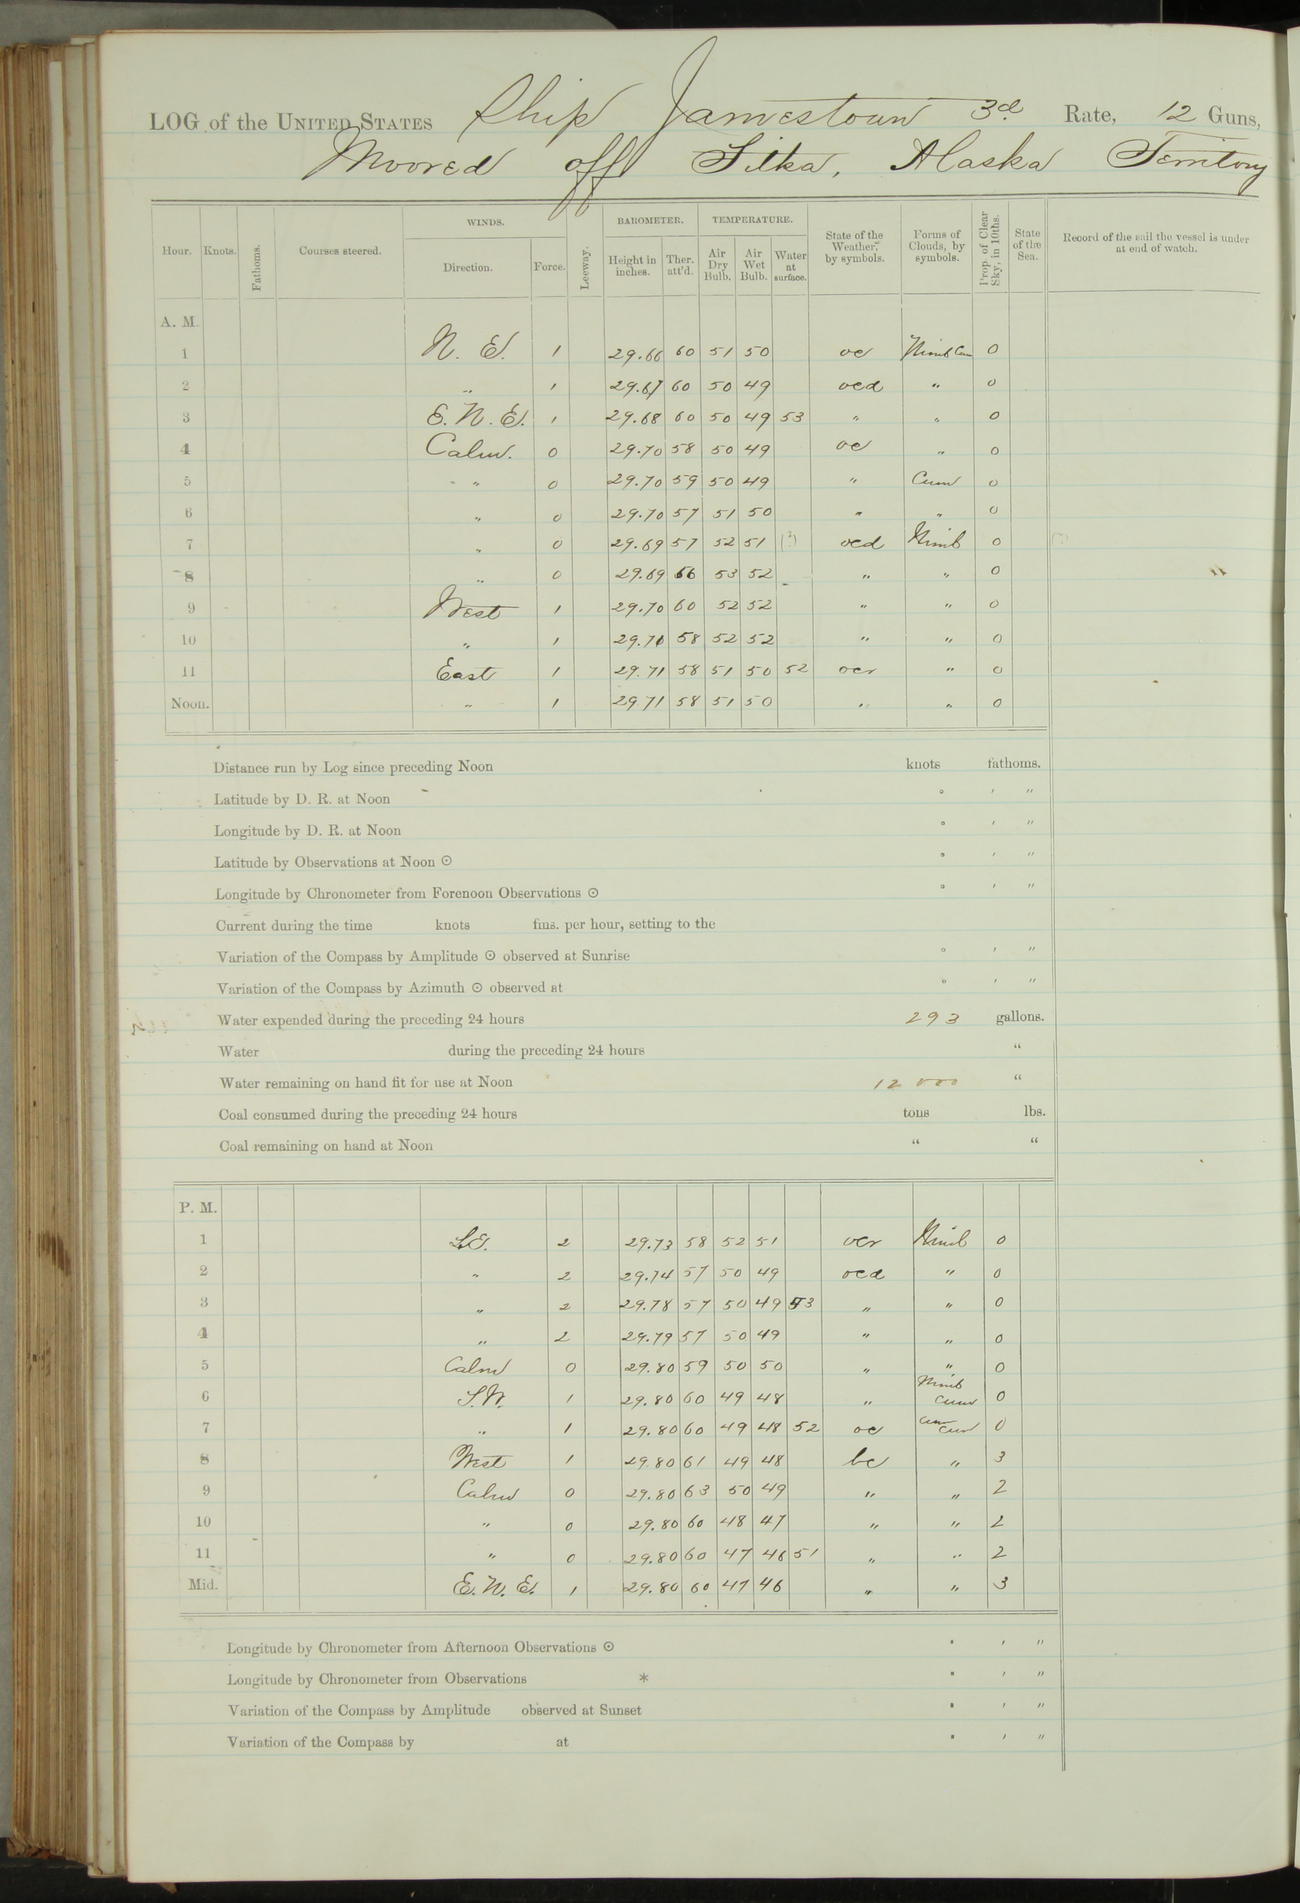 LOG of the UNITED STATES Ship Jamestown 3d Rate, 12 Guns,
Moored off Sitka, Alaska Territory
Hour. Knots. Fathoms. Courses steered. WINDS. Direction. Force. Leeway. BAROMETER. Height in inches. Ther. att'd. TEMPERATURE. Air Dry Bulb. Air Wet Bulb. Water at surface. State of the Weather, by symbols. Forms of Clouds, by symbols. Prop. of Clear Sky, in 10ths. State of the Sea. Record of the sail the vessel is under at end of watch.
A. M.
1 N. E. 1 29.66 60 51 50 oc Nimb Cum 0
2 " 1 29.67 60 50 49 ocd " 0
3 E. N. E. 1 29.68 60 50 49 53 " " 0
4 Calm. 0 29.70 58 50 49 oc " 0
5 " 0 29.70 59 50 49 " Cum 0
6 " 0 29.70 57 51 50 " " 0
7 " 0 29.69 57 52 51 ocd Nimb 0
8 " 0 29.69 56 53 52 " " 0
9 West 1 29.70 60 52 52 " " 0
10 " 1 29.71 58 52 52 " " 0
11 East 1 29.71 58 51 50 52 ocr " 0
Noon. " 1 29.71 58 51 50 " " 0
Distance run by Log since preceding Noon knots fathoms.
Latitude by D. R. at Noon ° ′ ″
Longitude by D. R. at Noon ° ′ ″
Latitude by Observations at Noon ⊙ ° ′ ″
Longitude by Chronometer from Forenoon Observations ⊙ ° ′ ″
Current during the time knots fms. per hour, setting to the
Variation of the Compass by Amplitude ⊙ observed at Sunrise ° ′ ″
Variation of the Compass by Azimuth ⊙ observed at ° ′ ″
Water expended during the preceding 24 hours 293 gallons.
Water during the preceding 24 hours "
Water remaining on hand fit for use at Noon 12000 "
Coal consumed during the preceding 24 hours tons lbs.
Coal remaining on hand at Noon " "
P. M.
1 S.E. 2 29.73 58 52 51 ocr Nimb 0
2 " 2 29.74 57 50 49 ocd " 0
3 " 2 29.78 57 50 49 53 " " 0
4 " 2 29.79 57 50 49 " " 0
5 Calm 0 29.80 59 50 50 " " 0
6 S.W. 1 29.80 60 49 48 " Nimb Cum 0
7 " 1 29.80 60 49 48 52 oc Cum 0
8 West 1 29.80 61 49 48 bc " 3
9 Calm 0 29.80 63 50 49 " " 2
10 " 0 29.80 60 48 47 " " 2
11 " 0 29.80 60 47 46 51 " " 2
Mid. E. N. E. 1 29.80 60 47 46 " " 3
Longitude by Chronometer from Afternoon Observations ⊙ ° ′ ″
Longitude by Chronometer from Observations * ° ′ ″
Variation of the Compass by Amplitude observed at Sunset ° ′ ″
Variation of the Compass by at ° ′ ″